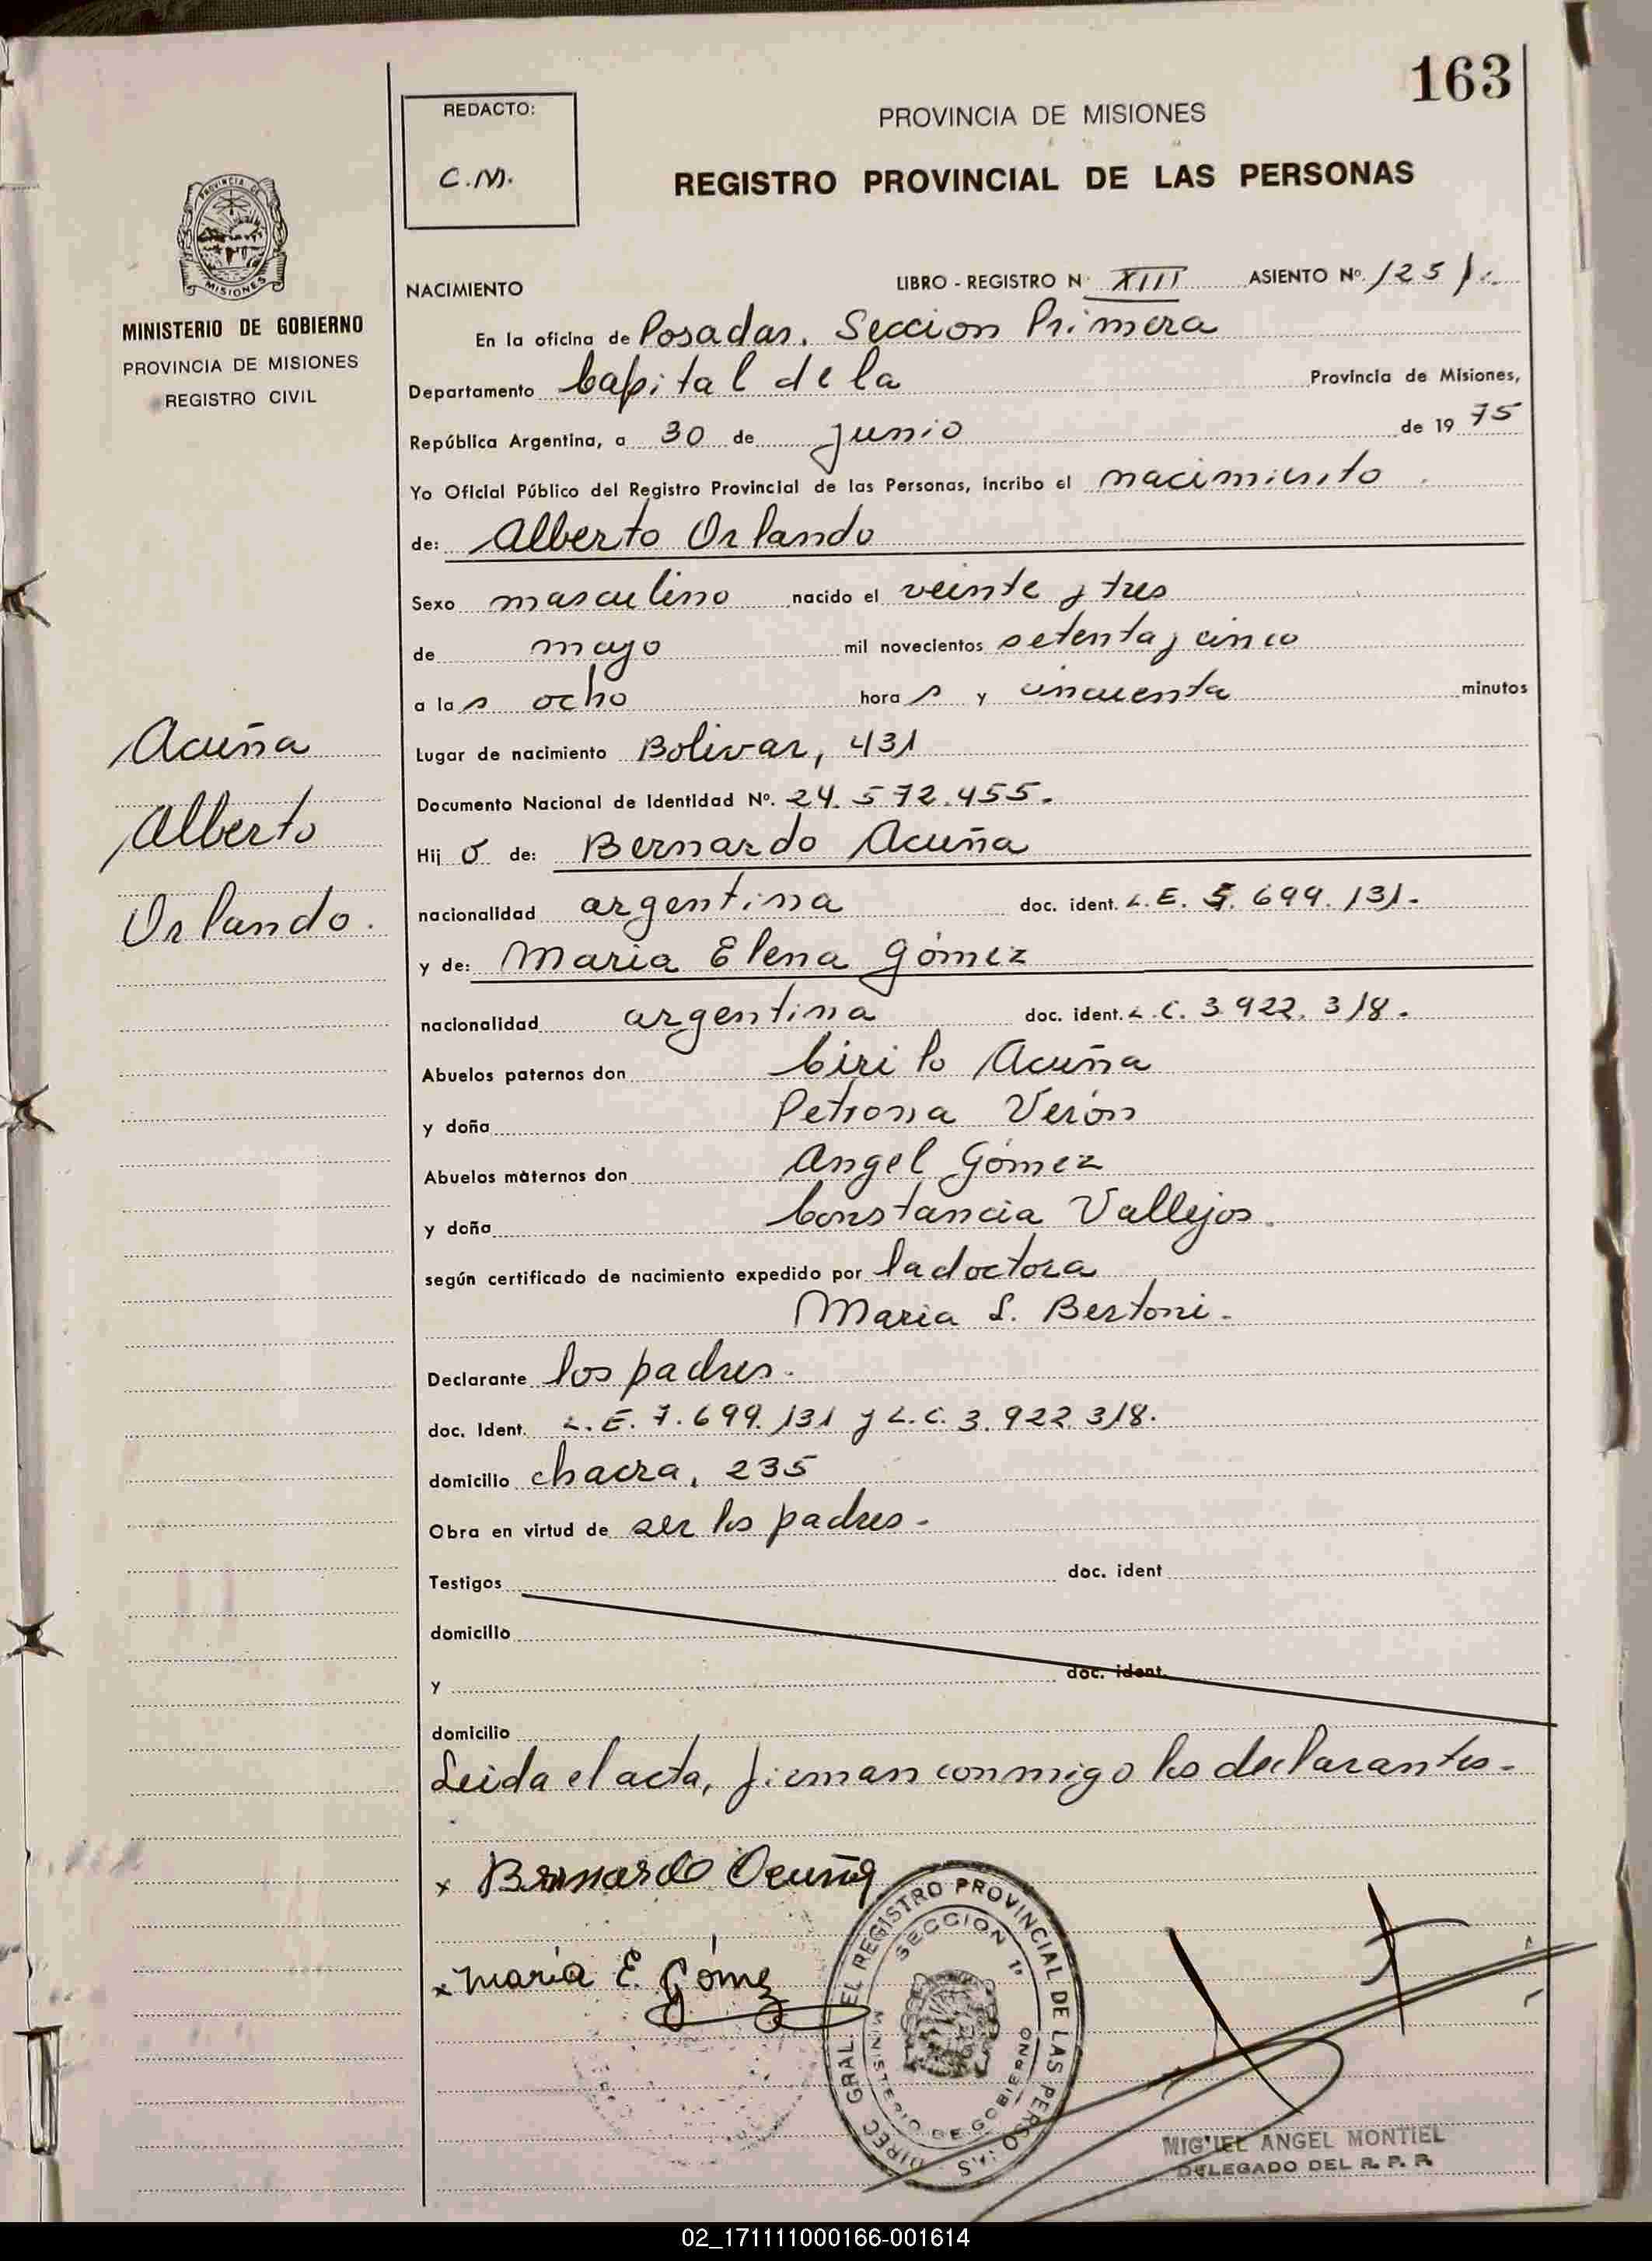 163
REDACTO:
C.M.
PROVINCIA DE MISIONES
REGISTRO PROVINCIAL DE LAS PERSONAS
PROVINCIA DE
MISIONES
MINISTERIO DE GOBIERNO
PROVINCIA DE MISIONES
REGISTRO CIVIL
NACIMIENTO LIBRO - REGISTRO N· XIII ASIENTO Nº. 1251.
En la oficina de Posadas. Seccion Primera
Departamento Capital de la Provincia de Misiones,
República Argentina, a 30 de junio de 1975
Yo Oficial Público del Registro Provincial de las Personas, incribo el nacimiento
de: Alberto Orlando
Sexo masculino nacido el veinte y tres
de mayo mil novecientos setenta y cinco
a las ocho horas y cincuenta minutos
Lugar de nacimiento Bolivar, 431
Documento Nacional de Identidad Nº. 24.572.455.
Hijo de: Bernardo Acuña
nacionalidad argentina doc. ident. L.E. 699.131.
y de: Maria Elena Gómez
nacionalidad argentina doc. ident. L.C. 3.922.318.
Abuelos paternos don Cirilo Acuña
y doña Petrona Verón
Abuelos maternos don Angel Gómez
y doña Constancia Vallejos.
según certificado de nacimiento expedido por la doctora
Maria S. Bertoni.
Declarante los padres.
doc. Ident. L.E. 7.699.131 y L.C. 3.922.318.
domicilio chacra, 235
Obra en virtud de ser los padres.
Testigos doc. ident
domicilio
y doc. ident.
domicilio
Leida el acta, firman conmigo los declarantes.
Acuña
Alberto
Orlando.
x Bernardo Acuña
x maria E. Gómez
DIREC GRAL. EL REGISTRO PROVINCIAL DE LAS PERSONAS
SECCION 1ª
MINISTERIO DE GOBIERNO
MIGUEL ANGEL MONTIEL
DELEGADO DEL R. P. P.
02_171111000166-001614